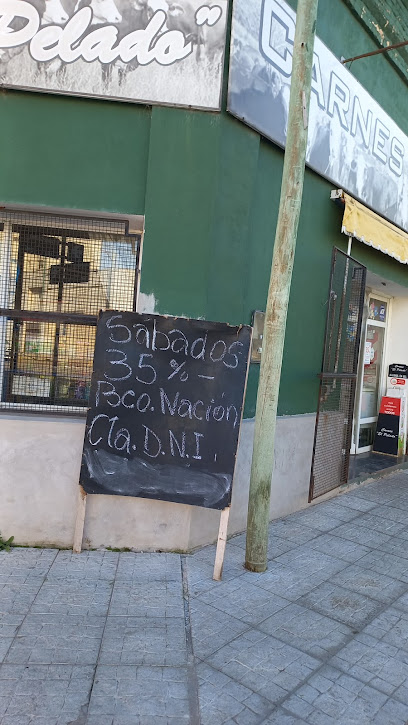 Pelado”
CARNES
Sábados
35 % –
Bco. Nación
Cta. D.N.I.